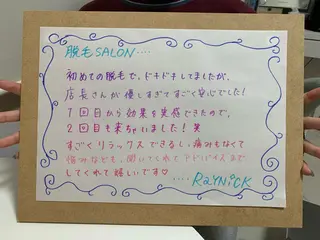 脱毛SALON....
初めての脱毛で、ドキドキしてましたが、
店長さんが優しすぎてすごく安心でした!
1回目から効果を実感できたので、
2回目も来ちゃいました! 笑
すごくリラックスできるし、痛みもなくて
悩みなども、聞いてくれてアドバイスまで
してくれて嬉しいです♡
.... RaYNiCK